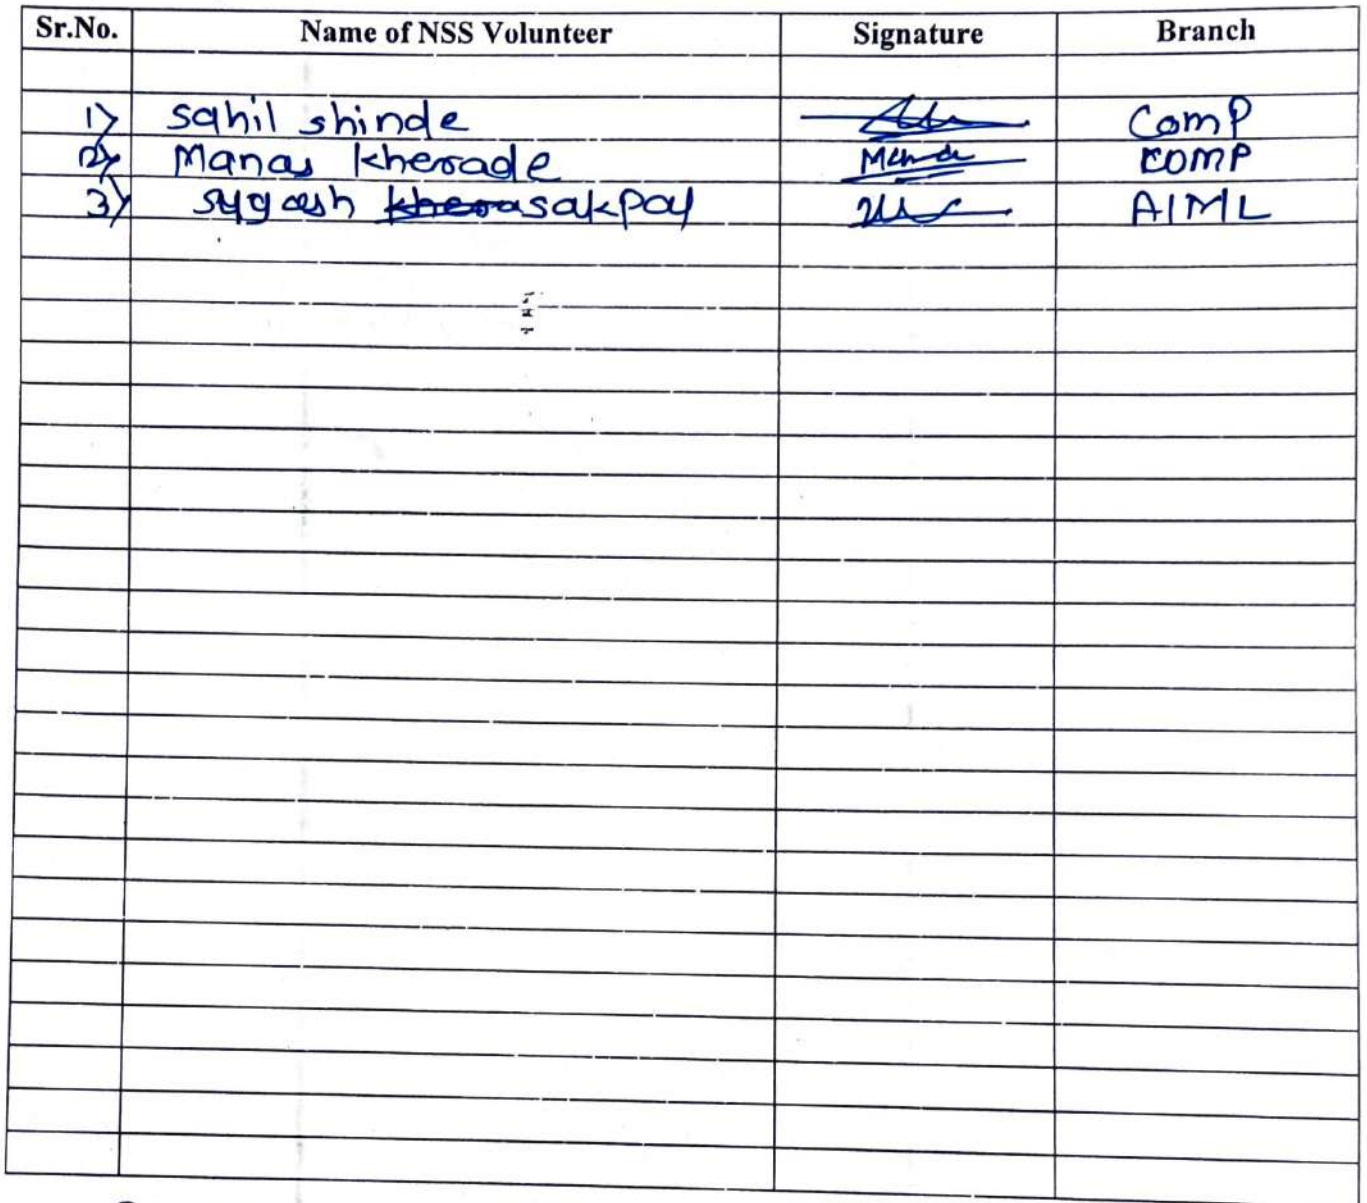 Sr.No. Name of NSS Volunteer Signature Branch
1) Sahil shinde Comp
2) Manas kherade COMP
3) sakpal AIML